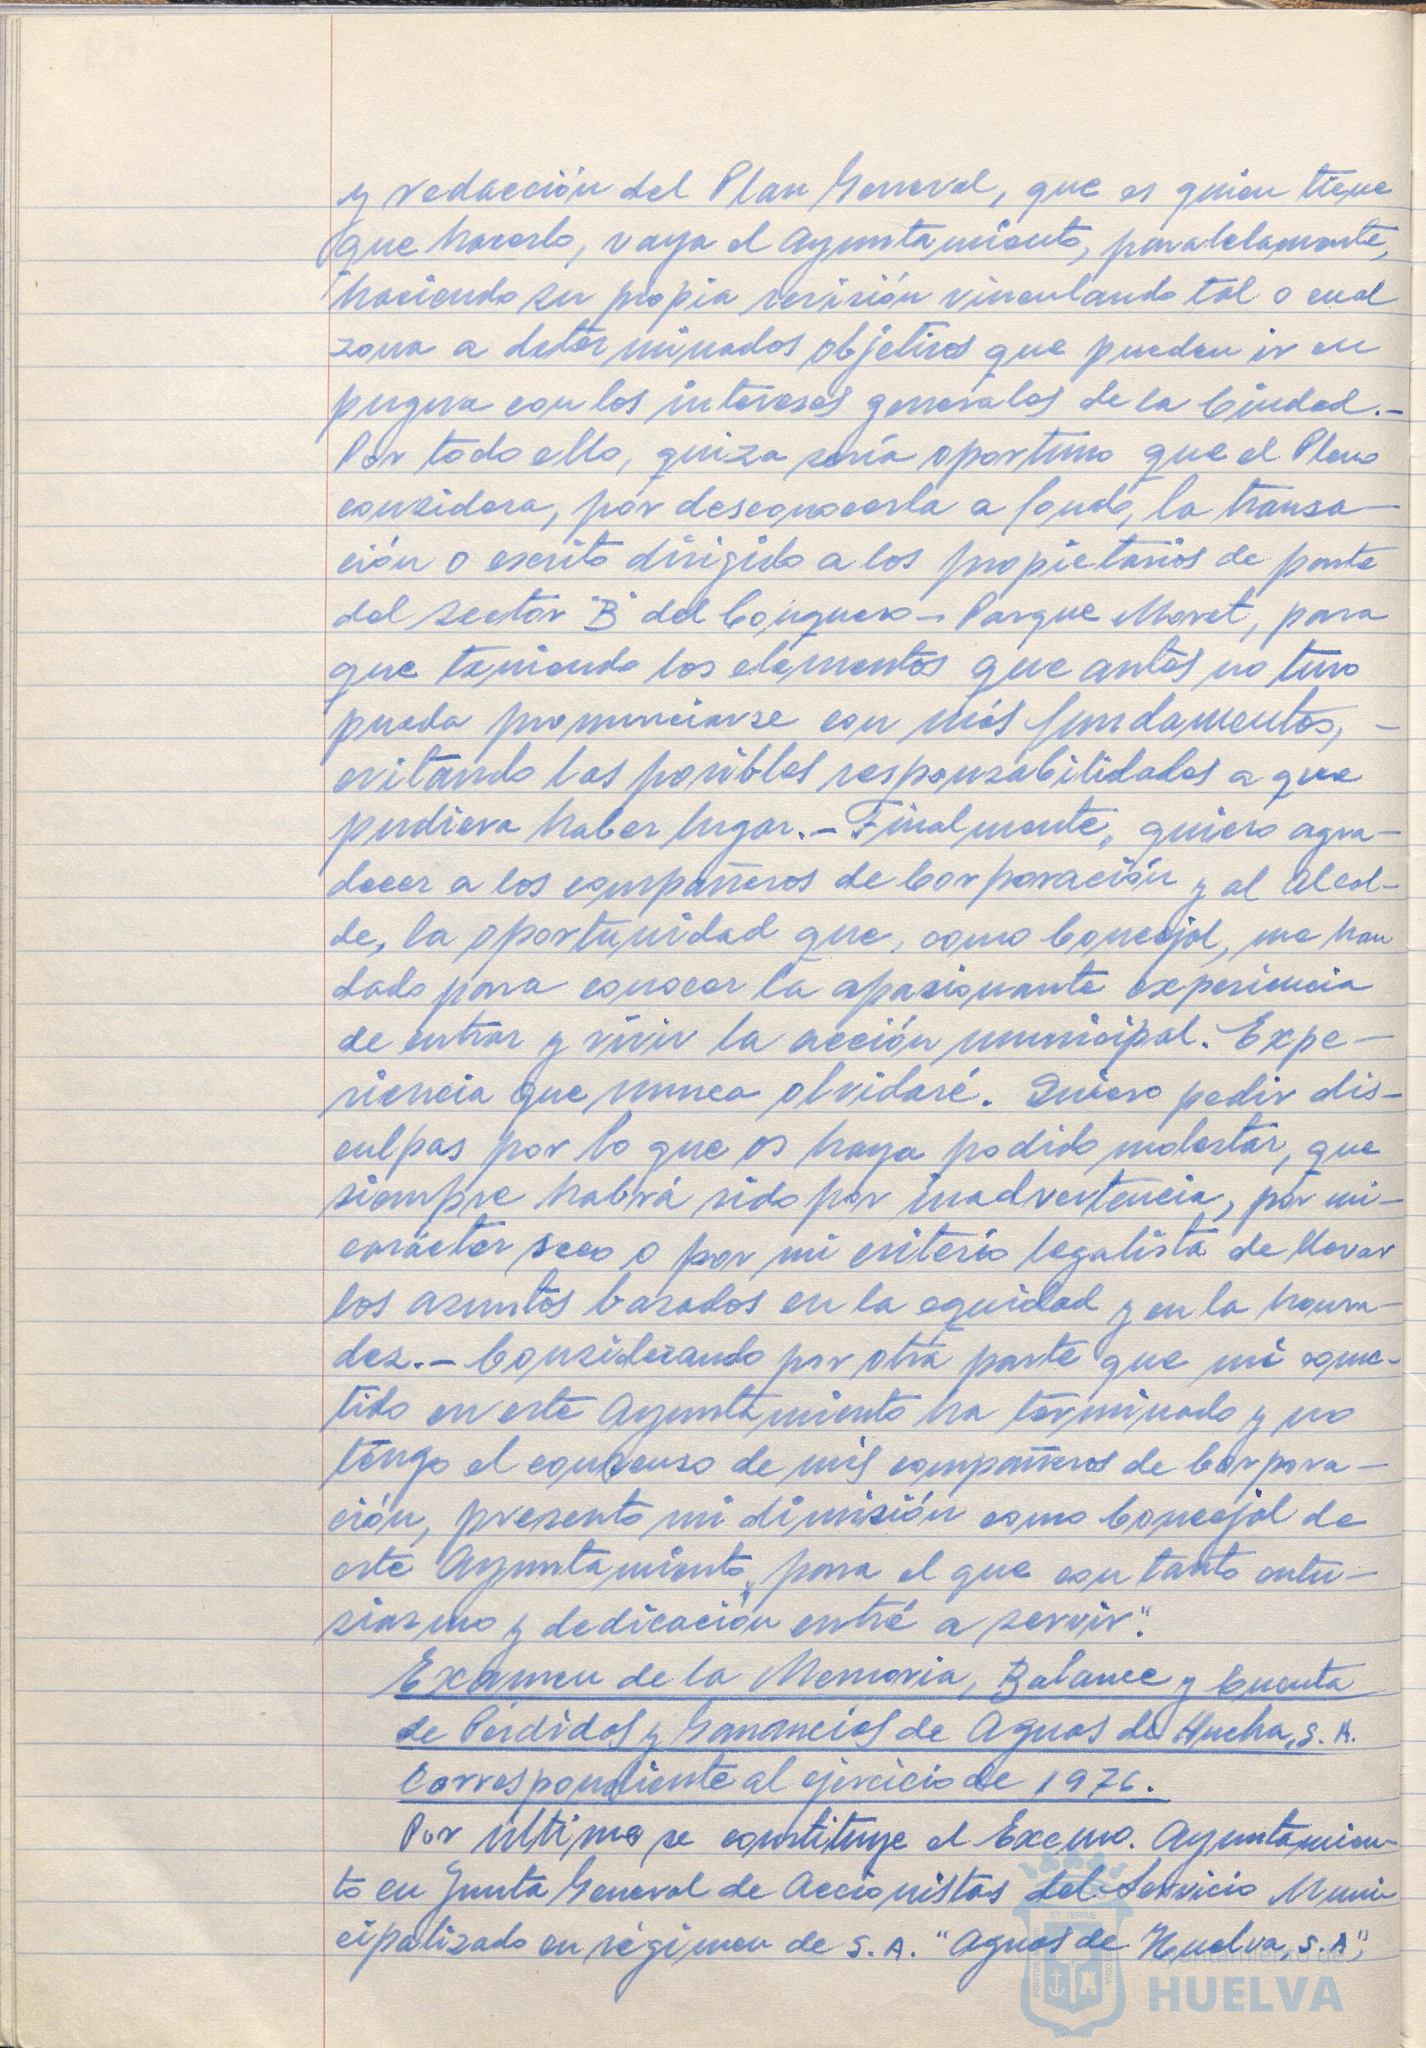 y redacción del Plan General, que es quien tiene
que hacerlo, vaya el Ayuntamiento, paralelamente,
haciendo su propia revisión vinculando tal o cual
zona a determinados objetivos que pueden ir en
pugna con los intereses generales de la Ciudad.-
Por todo ello, quiza sería oportuno que el Pleno
considera, por desconocerla a fondo, la transa-
ción o escrito dirigido a los propietarios de parte
del sector "B" del Conquero- Parque Moret, para
que teniendo los elementos que antes no tuvo
pueda pronunciarse con más fundamentos, -
evitando las posibles responsabilidades a que
pudiera haber lugar.- Finalmente, quiero agra-
decer a los compañeros de Corporación y al Alcal-
de, la oportunidad que, como Concejal, me han
dado para conocer la apasionante experiencia
de entrar y vivir la acción municipal. Expe-
riencia que nunca olvidaré. Quiero pedir dis-
culpas por lo que os haya podido molestar, que
siempre habrá sido por inadvertencia, por mi-
carácter seco o por mi criterio legalista de llevar
los asuntos basados en la equidad y en la honra-
dez.- Considerando por otra parte que mi come-
tido en este Ayuntamiento ha terminado y no
tengo el concenso de mis compañeros de Corpora-
ción, presento mi dimisión como Concejal de
este Ayuntamiento, para el que con tanto entu-
siasmo y dedicación entré a servir".
Examen de la Memoria, Balance y Cuenta
de Pérdidas y Ganancias de Aguas de Huelva, S.A.
Correspondiente al ejercicio de 1976.
Por último se constituye el Excmo. Ayuntamien-
to en Junta General de Accionistas del Servicio Muni-
cipalizado en régimen de S.A. "Aguas de Huelva, S.A",
Ayuntamiento de
HUELVA